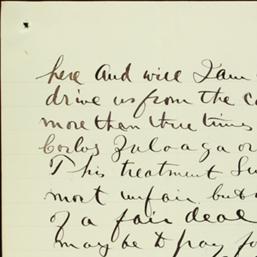 here And will I am
drive us from the co
more than three times
Carlos Zuloaga or
This treatment Su
most unfair but
of a fair deal
may be to pay fo